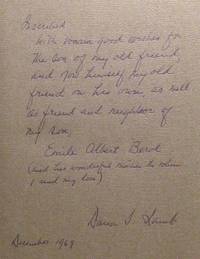 Inscribed
with warm good wishes for
the son of my old friend,
and for himself my old
friend on his own, as well
as friend and neighbor of
my son,
Emile Albert Berol
(and his wonderful to whom
I send my love)
Lamb
December 1969